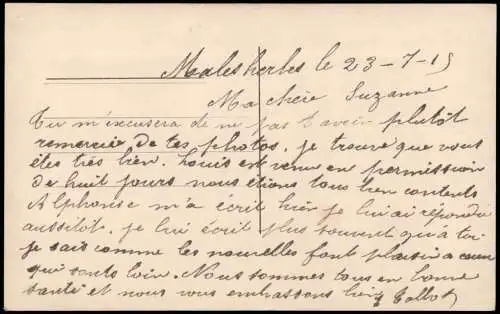 Malesherbes le 23-7-15
Ma chère Suzanne
Tu m'excusera de ne pas t'avoir plutôt
remercié de tes photos. je trouve que vous
êtes très bien. Louis est venu en permission
de huit jours nous étions tous bien contents
Alphonse m'a écrit hier je lui ai répondu
aussitôt. je lui écrit plus souvent qu'à toi
je sais comme les nouvelles font plaisir a ceux
qui sont loin. Nous sommes tous en bonne
santé et nous vous embrassons bien